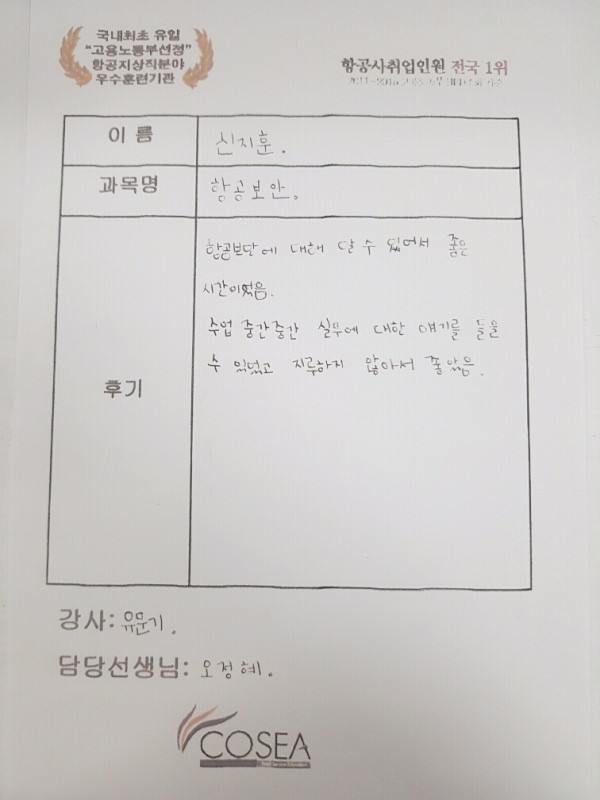 국내최초 유일
"고용노동부선정"
항공지상직분야
우수훈련기관
항공사취업인원 전국 1위
이 름
신지훈.
과목명
항공보안.
후기
항공보안에 대해 알 수 있어서 좋은
시간이었음.
수업 중간중간 실무에 대한 얘기를 들을
수 있었고 지루하지 않아서 좋았음.
강사: 유문기.
담당선생님: 오정혜.
COSEA